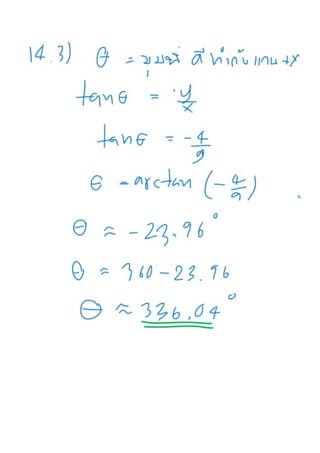 14.3) θ = มุมที่ ... ทำกับแกน +x
tanθ = y/x
tanθ = -4/9
θ = arctan (-4/9)
θ ≈ -23.96°
θ ≈ 360-23.96
θ ≈ 336.04°